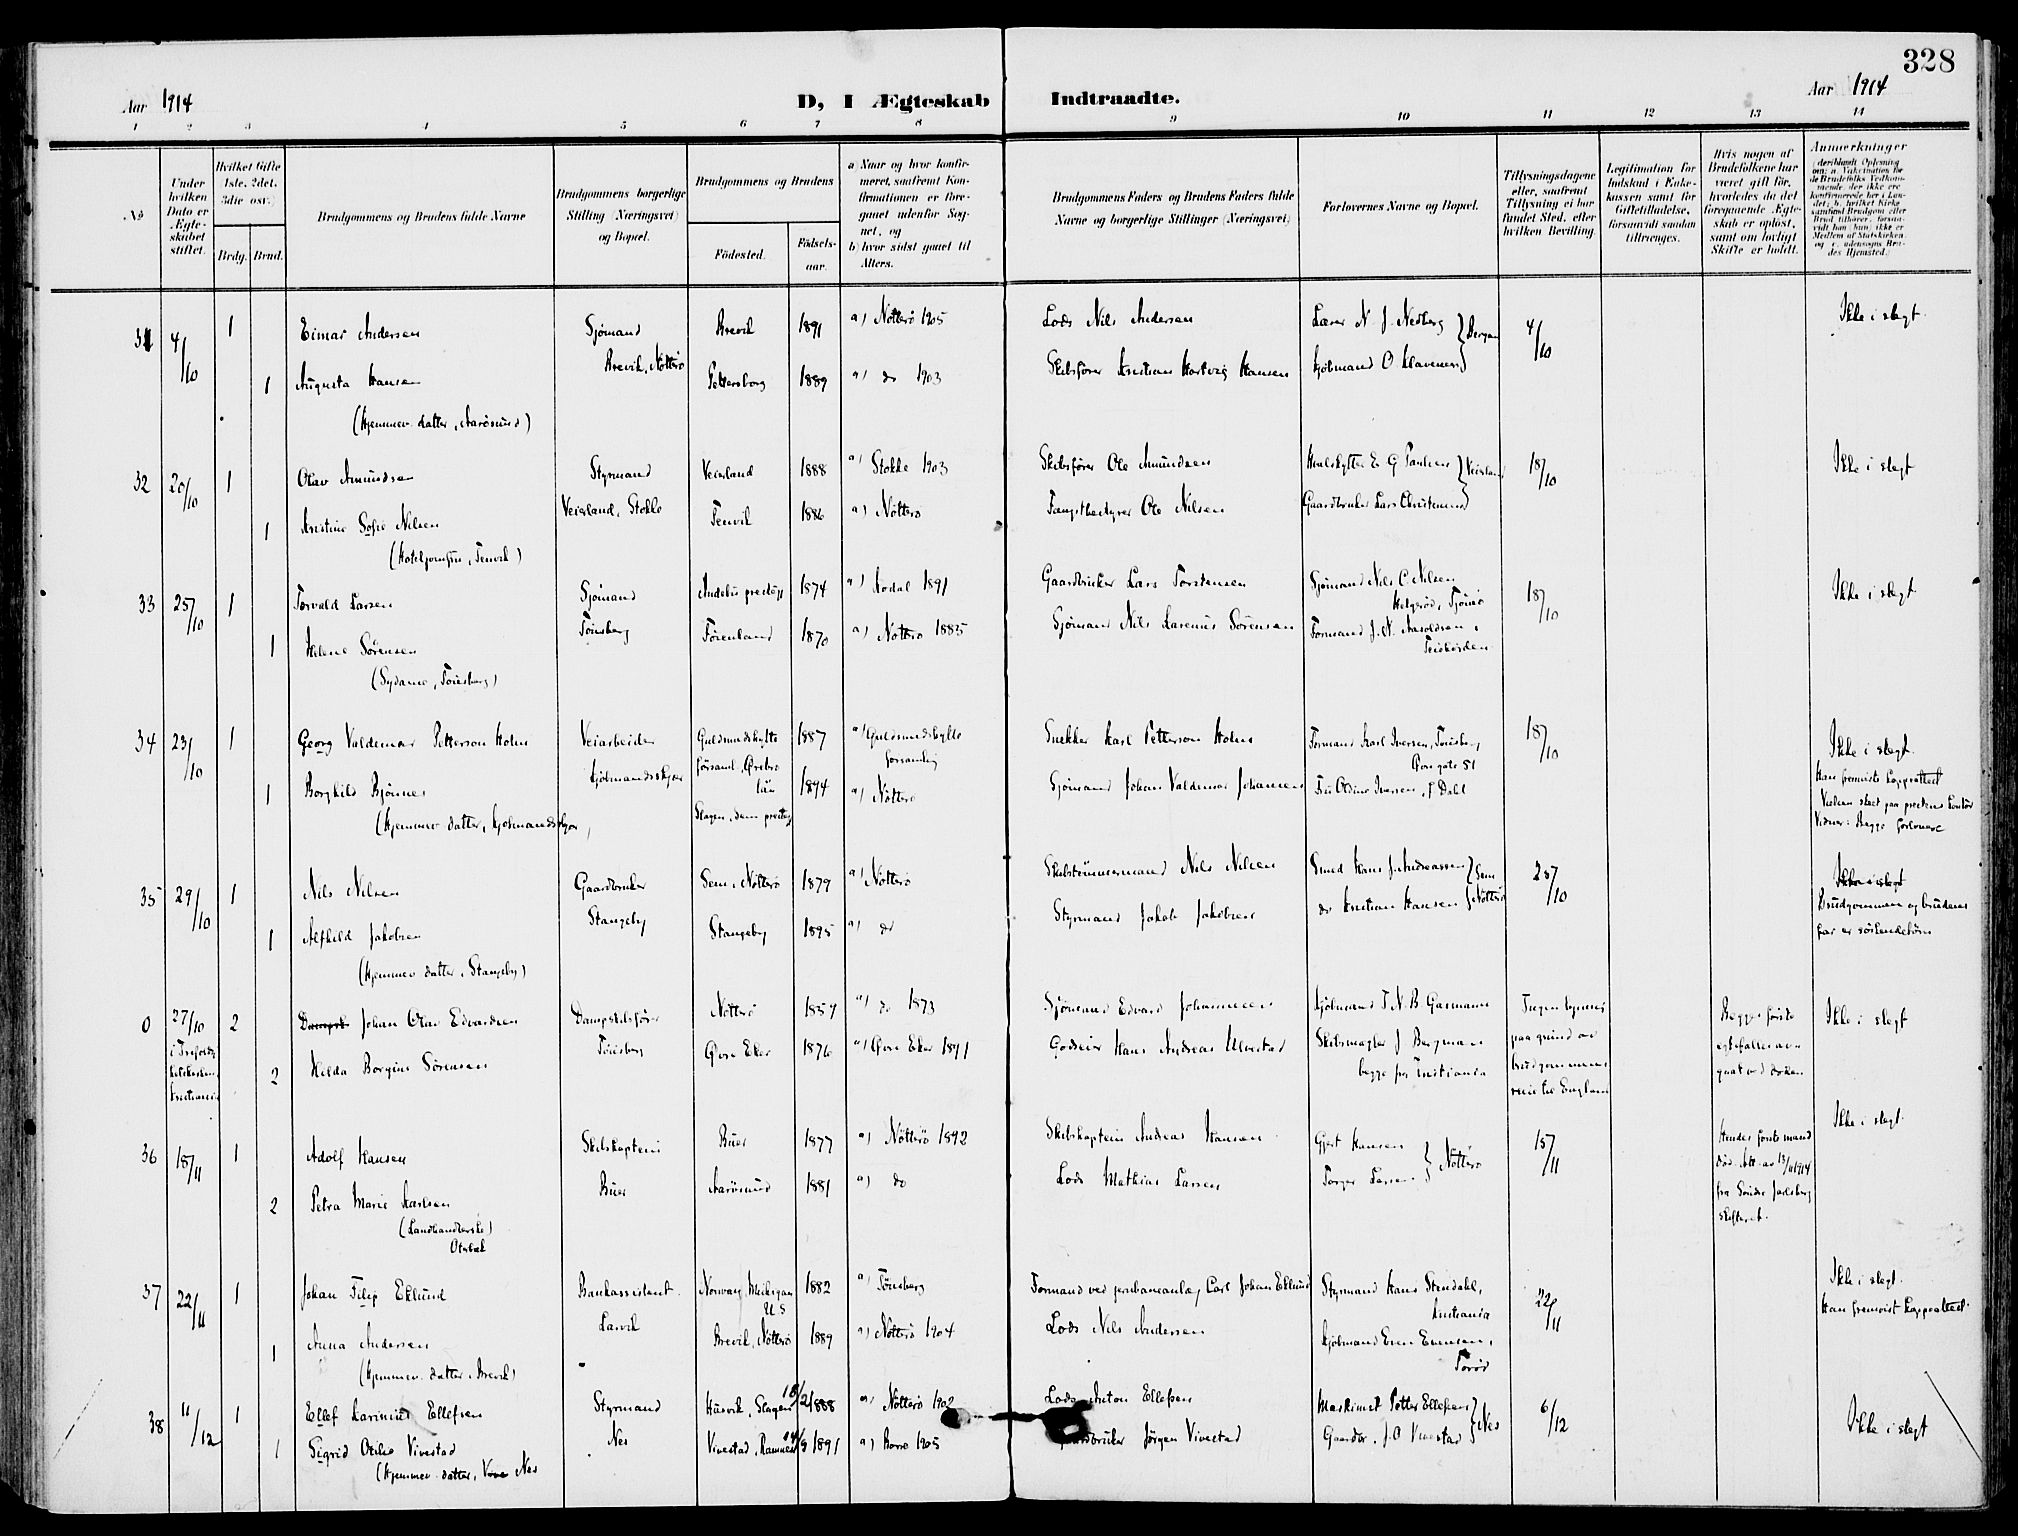 328
Aar 1914
D, I Ægteskab Indtraadte.
Aar 1914
1 2 3 4 5 6 7 8 9 10 11 12 13 14
No
Under hvilken Dato er Ægteskabet stiftet.
Hvilket Gifte 1ste, 2det, 3die osv.)
Brdg. Brud.
Brudgommens og Brudens fulde Navne
Brudgommens borgerlige Stilling (Næringsvei) og Bopæl.
Brudgommens og Brudens
Födested.
Födselsaar.
a) Naar og hvor konfirmeret, saafremt Konfirmationen er foregaaet udenfor Sognet, og
b) hvor sidst gaaet til Alters.
Brudgommens Faders og Brudens Faders fulde Navne og borgerlige Stillinger (Næringsvei)
Forlovernes Navne og Bopæl.
Tillysningsdagene eller, saafremt Tillysning ei har fundet Sted, efter hvilken Bevilling.
Legitimation for Indskud i Enkekassen samt for Giftetilladelse, forsaavidt saadan tiltrænges.
Hvis nogen af Brudefolkene har været gift för, hvorledes da det foregaaende Ægteskab er oplöst, samt om lovligt Skifte er holdt.
Anmerkninger
31 4/10 1 Einar Andersen Sjømand Brevik 1891 a) Nøtterø 1905 Lods Nils Andersen Lærer N. J. Nedberg 4/10 Ikke i slegt.
Brevik, Nøtterø
1 Augusta Hansen 1889 a) do 1903 Skibsfører Kristian Hartvig Hansen Kjøbmand O Klavenes
(Hjemmev. datter, Aarøsund)
32 20/10 1 Olav Amundsen Styrmand Veierland 1888 a) Stokke 1903 Skibsfører Ole Amundsen Hvalskytter E. G Paulsen Veierland 18/10 Ikke i slegt
Veierland, Stokke
1 Kristine Sofie Nilsen Tenvik 1886 a) Nøtterø Fangstbestyrer Ole Nilsen Gaardbruker Lars Christensen
(Hoteljomfru, Tenvik)
33 25/10 1 Torvald Larsen Sjømand 1874 a) Aadal 1891 Gaardbruker Lars Torstensen Sjømand Nils C. Nilsen 18/10 Ikke i slegt
Helgerød, Tjømø
Tønsberg
1 Helene Sørensen 1870 a) Nøtterø 1885 Sjømand Nils Larenius Sørensen Formand J. N. Aasoldsen,
(Sydame, Tønsberg)
34 23/10 1 Georg Valdemar Petterson Holm Veiarbeider Guldsmedshytte 1887 a) Guldsmedshytte Snekker Karl Petterson Holm Formand Karl Iversen, Tønsberg 18/10 Ikke i slegt.
församl., Ørebro forsamling
län
Kjøbmandsskjær
1 Borghild Bjønnes 1894 a) Nøtterø Sjømand Johan Valdemar Johansen Fru Oldine Iversen, f. Dahl
(Hjemmev. datter, Kjøbmandsskjær)
Han fremviste koppeattest
Vielsen sket paa prestens kontor
Vidner: Begge forlovere
35 29/10 1 Nils Nilsen Gaardbruker Sem, Nøtterø 1879 a) Nøtterø Skibstømmermand Nils Nilsen Smed Hans J. Andreassen Sem 25/10 Ikke i slegt
Stangeby
1 Alfhild Jakobsen Stangeby 1895 a) do Styrmand Jakob Jakobsen do Kristian Hansen Nøtterø
Brudgommen og brudens far er søskendebørn
(Hjemmev datter, Stangeby)
0 27/10 2 Dampsk Johan Olav Edvardsen Dampskibsfører Nøtterø 1857 a) do 1873 Sjømand Edvard Johannesen Kjøbmand T. N. B. Gasmann Ingen lysning Ikke i slegt
i Trefoldighetskirken, Kristiania
Tønsberg
2 Hilda Borgine Sørensen Øvre Eker 1876 a) Øvre Eker 1891 Godseier Hans Andreas Ulvestad Skibsmægler J. Bergman
begge fra Kristiania
paa grund av brudgommens reise til England
Begges første egtefæller avgaat ved døden
36 15/11 1 Adolf Hansen Skibskaptein Buer 1877 a) Nøtterø 1892 Skibskaptein Andreas Hansen Gjert Hansen 15/11 Ikke i slegt.
Buer
2 Petra Marie Karlsen Aarøsund 1881 a) do Lods Mathias Larsen Torger Larsen Nøtterø
(Landhandlerske)
Hendes første mand død. Att. av 13/11 1914 fra Søndre Jarlsberg skifteret.
37 22/11 1 Johan Filip Eklund Bankassistent. Norway, Michigan 1882 a) Tønsberg Formand ved jernbaneanlæg Carl Johan Eklund Styrmand Hans Stendahl, 22/11 Ikke i slegt.
U S Kristiania
Larvik Han fremviste koppeattest.
1 Anna Andersen Brevik, Nøtterø 1889 a) Nøtterø 1904 Lods Nils Andersen Kjøbmand Even Evensen,
Torød
(Hjemmev. datter, Brevik)
38 11/12 1 Ellef Karinius Ellefsen Styrmand Husvik, Slagen 18/2 1888 a) Nøtterø 1902 Lods Anton Ellefsen Maskinist Petter Ellefsen 6/12 Ikke i slegt
Nes
1 Sigrid Otilie Vivestad Vivestad, Ramnes 1891 a) Borre 1905 Gaardbruker Jørgen Vivestad Gaardbr. J. O Vivestad Nes
(Hjemmev. datter, Nes